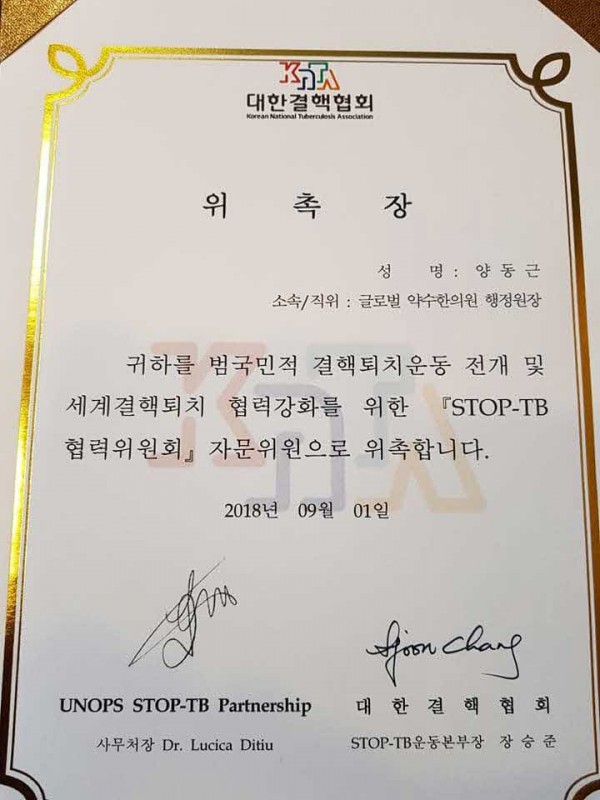 KNTA
대한결핵협회
Korean National Tuberculosis Association
위 촉 장
성 명 : 양 동 근
소속/직위 : 글로벌 약수한의원 행정원장
귀하를 범국민적 결핵퇴치운동 전개 및
세계결핵퇴치 협력강화를 위한 『STOP-TB
협력위원회』 자문위원으로 위촉합니다.
2018년 09월 01일
Sjoon Chang
UNOPS STOP-TB Partnership
대 한 결 핵 협 회
사무처장 Dr. Lucica Ditiu
STOP-TB운동본부장 장 승 준